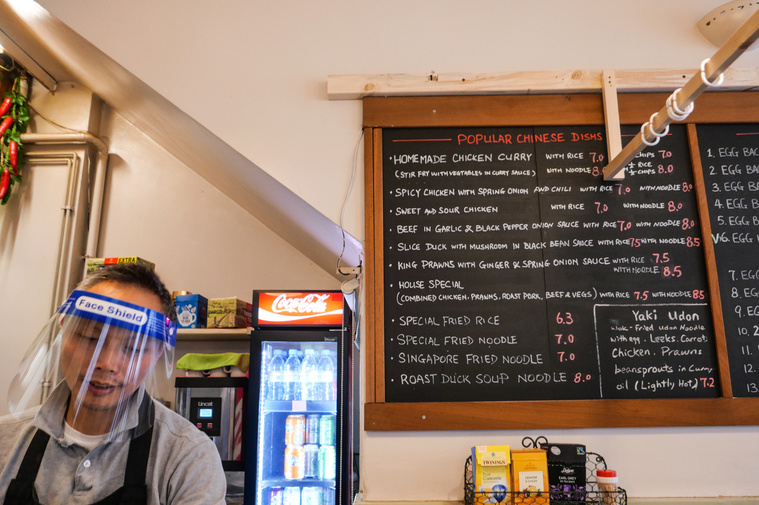 POPULAR CHINESE DISHS
• HOMEMADE CHICKEN CURRY WITH RICE 7.0 CHIPS 7.0
(STIR FRY WITH VEGETABLES IN CURRY SAUCE) WITH NOODLE 8.0 ½ RICE ½ CHIPS
• SPICY CHICKEN WITH SPRING ONION AND CHILI WITH RICE 7.0 WITH NOODLE 8.0
• SWEET AND SOUR CHICKEN WITH RICE 7.0 WITH NOODLE 8.0
• BEEF IN GARLIC & BLACK PEPPER ONION SAUCE WITH RICE 7.0 WITH NOODLE 8.0
• SLICE DUCK WITH MUSHROOM IN BLACK BEAN SAUCE WITH RICE 7.5 WITH NOODLE 8.5
• KING PRAWNS WITH GINGER & SPRING ONION SAUCE WITH RICE 7.5
WITH NOODLE 8.5
• HOUSE SPECIAL
(COMBINED CHICKEN, PRAWNS, ROAST PORK, BEEF & VEGS) WITH RICE 7.5 WITH NOODLE 8.5
• SPECIAL FRIED RICE 6.3
• SPECIAL FRIED NOODLE 7.0
• SINGAPORE FRIED NOODLE 7.0
• ROAST DUCK SOUP NOODLE 8.0
Yaki Udon
Wok-Fried udon Noodle
with egg. Leeks. Carrot
Chicken. Prawns
beansprouts in Curry
oil (Lightly Hot) 7.2
1. EGG BAC
2. EGG BA
3. EGG B
4. EGG
5. EGG
V6. EGG
7. EGG
8. EGG
9. EG
10.
11.
12
13.
Face Shield
Coca-Cola
Lincat
EXTRA
TWININGS
EARL GREY